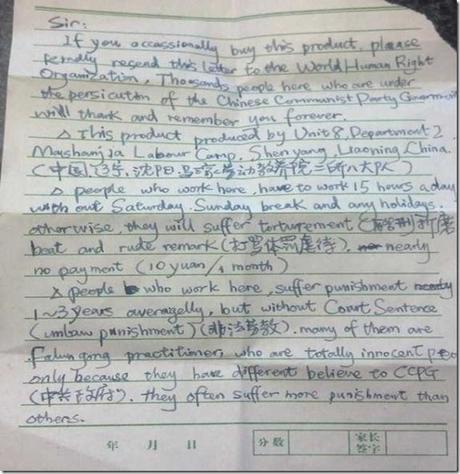 Sir:
If you occassionally buy this product, please
kendly resend this letter to the World Human Right
Organization. Thousands people here who are under
the persicution of the Chinese Communist Party Government
will thank and remember you forever.
△ This product produced by Unit 8, Department 2
Mashanjia Labour Camp, Shenyang, Liaoning, China.
(中国,辽宁,沈阳,马三家劳动教养院二所八大队)
△ people who work here, have to work 15 hours a day
with out Saturday, Sunday break and any holidays.
otherwise, they will suffer torturement 折磨
beat and rude remark (打骂体罚虐待). nearly
no payment (10 yuan/1 month)
△ people who work here, suffer punishment
1~3 years averagelly, but without Court Sentence
(unlaw punishment) (非法劳教). many of them are
Falungong practitioner, who are totally innocent
only because they have different believe to CCPG
(中共政府). they often suffer more punishment than
others.
年 月 日 分数 家长签字